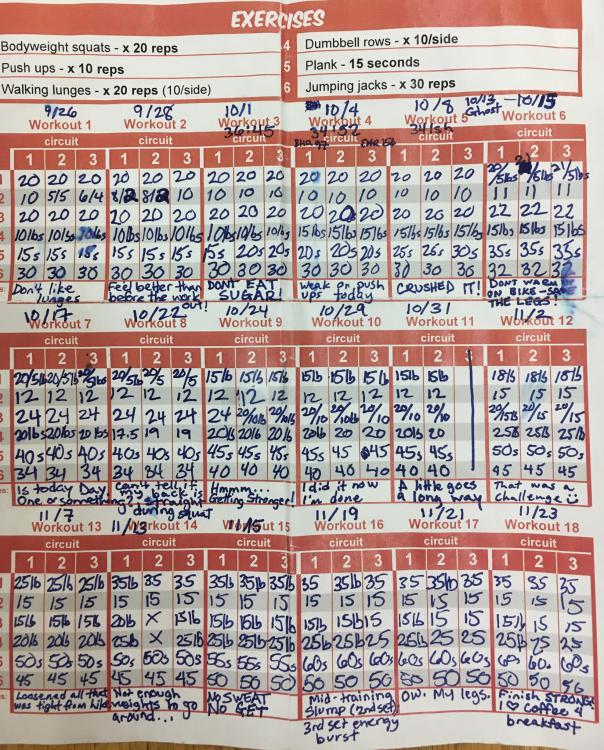 EXERCISES
Bodyweight squats - x 20 reps
Push ups - x 10 reps
Walking lunges - x 20 reps (10/side)
4 Dumbbell rows - x 10/side
5 Plank - 15 seconds
6 Jumping jacks - x 30 reps
9/26 9/28 10/1 10/4 10/8 10/13 Ghost 10/15
Workout 1 Workout 2 Workout 3 Workout 4 Workout 5 Workout 6
36:45
circuit circuit circuit circuit circuit circuit
1 2 3 1 2 3 1 2 3 1 2 3 1 2 3 1 2 3
20 20 20 20 20 20 20 20 20 20 20 20 20 20 20
10 5/5 6/4 8/2 8/2 10 10 10 10 10 10 10 10 10 10 11 11 11
20 20 20 20 20 20 20 20 20 20 20 20 20 20 20 22 22 22
10lbs 10lbs 10lbs 10lbs 10lbs 10lbs 10lbs 10lbs 10lbs 15lbs 15lbs 15lbs 15lbs 15lbs 15lbs 15lbs 15lbs 15lbs
15s 15s 15s 15s 15s 15s 15s 20s 20s 20s 20s 20s 25s 25s 30s 35s 35s 35s
30 30 30 30 30 30 30 30 30 30 30 30 30 30 30 32 32 32
Don't like lunges
Feel better than before the work out!
DON'T EAT SUGAR!
Weak on push ups today
CRUSHED IT!
DON'T WARM ON BIKE - SAVE THE LEGS!
10/17 10/22 10/24 10/29 10/31 11/2
Workout 7 Workout 8 Workout 9 Workout 10 Workout 11 Workout 12
circuit circuit circuit circuit circuit circuit
1 2 3 1 2 3 1 2 3 1 2 3 1 2 3 1 2 3
20/5lb 20/5lb 20/5lbs 20/5lb 20/5 20/5 15lb 15lb 15lb 15lb 15lb 15lb 15lb 15lb 18lb 18lb 18lb
12 12 12 12 12 12 12 12 12 12 12 12 12 12 15 15 15
24 24 24 24 24 24 24 20/10lb 20/10lb 20/10 20/10 20/10 20/10 20/10 20/15lb 20/15 20/15
20lbs 20lbs 20lbs 17.5 19 19 20lb 20lb 20lb 20lb 20 20 20lb 20 25lb 25lb 25lb
40s 40s 40s 40s 40s 40s 45s 45s 45s 45s 45 45 45s 45s 50s 50s 50s
34 34 34 34 34 34 40 40 40 40 40 40 40 40 45 45 45
Is today Day One or something?
Can't tell if my back is straight during squat
Hmmm... Getting Stronger!
I did it now I'm done
A little goes a long way
That was a challenge
11/7 11/13 11/15 11/19 11/21 11/23
Workout 13 Workout 14 Workout 15 Workout 16 Workout 17 Workout 18
circuit circuit circuit circuit circuit circuit
1 2 3 1 2 3 1 2 3 1 2 3 1 2 3 1 2 3
25lb 25lb 25lb 35lb 35 35 35lb 35lb 35lb 35 35lb 35 35 35lb 35 35 35 35
15 15 15 15 15 15 15 15 15 15 15 15 15 15 15 15 15 15
15lb 15lb 15lb 20lb X 15lb 15lb 15lb 15lb 15lb 15lb 15 15lb 15 15 15lb 15 15
20lb 20lb 20lb 25lb X 25lb 25lb 25lb 25lb 25lb 25lb 25 25lb 25 25 25lb 25 25
50s 50s 50s 50s 50s 50s 55s 55s 55s 60s 60s 60s 60s 60s 60s 60s 60s 60s
45 45 45 45 45 45 50 50 50 50 50 50 50 50 50 50 50 50
Loosened all that was tight from hike
Not enough weights to go around...
NO SWEAT NO GET
Mid-training slump (2nd set) 3rd set energy burst
OW. My legs.
Finish STRONG! I ♡ coffee & breakfast